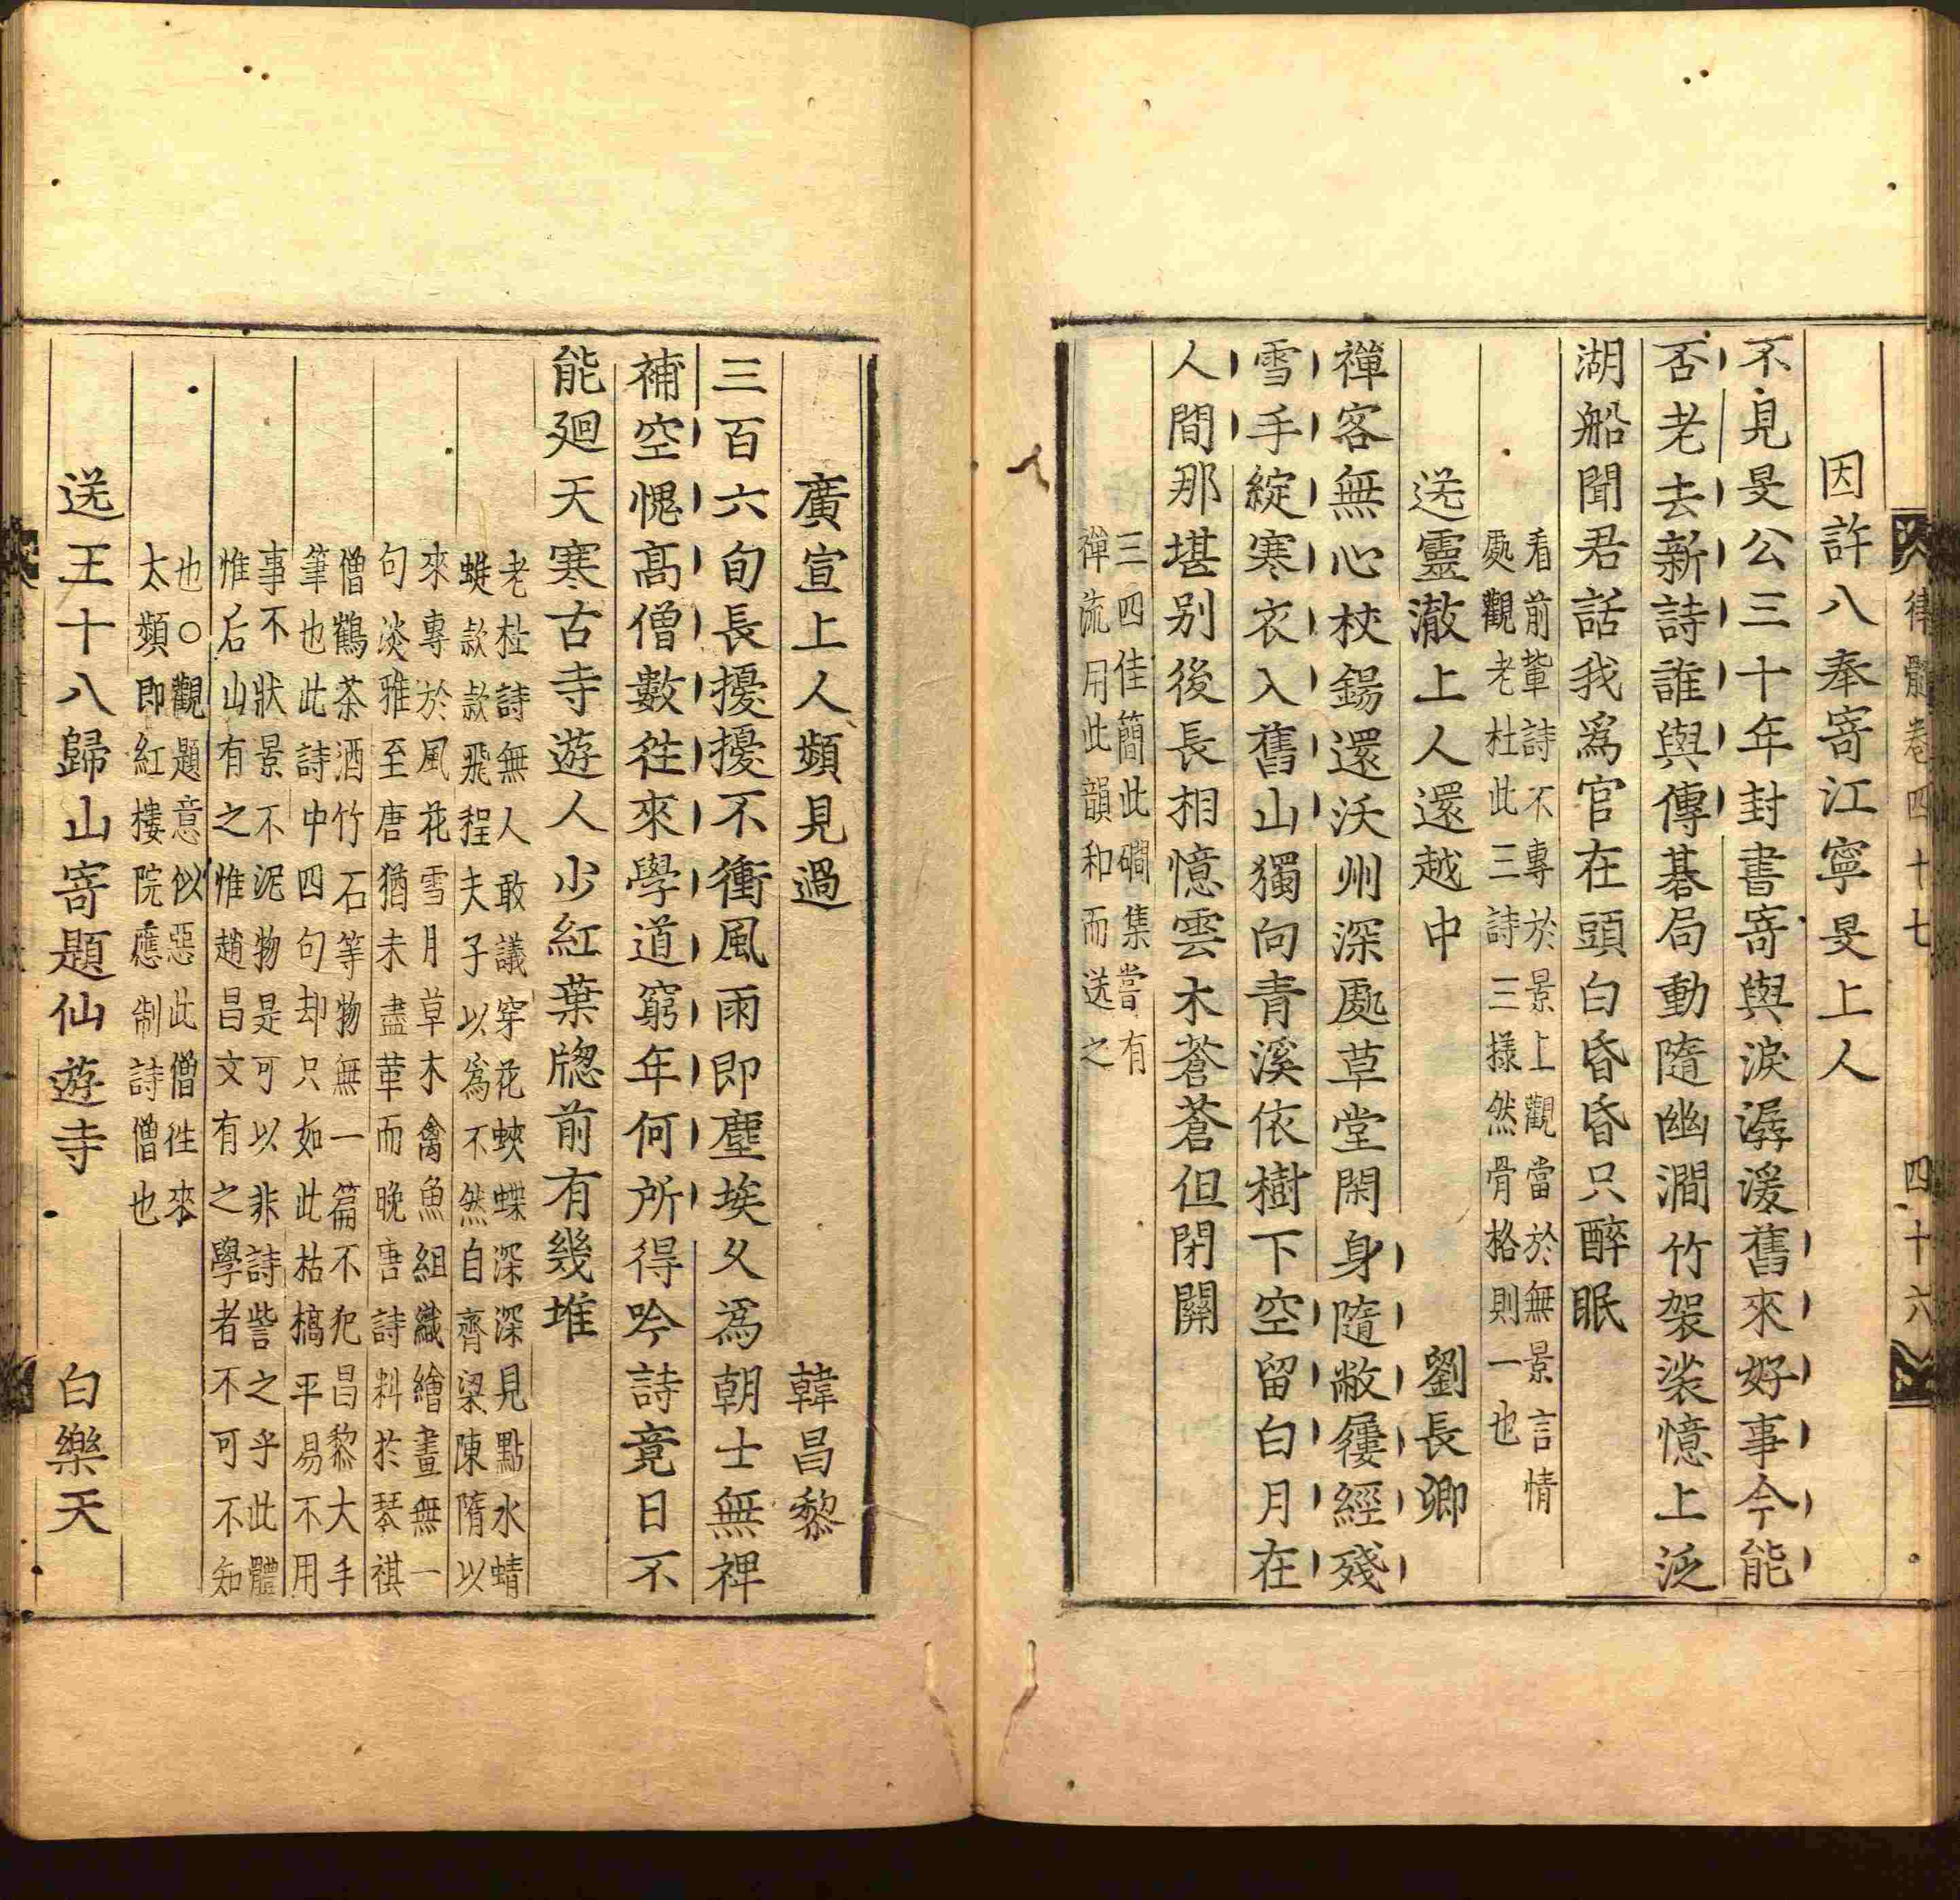 律髓卷四十七　四十六
因許八奉寄江寧旻上人
不見旻公三十年封書寄與淚潺湲舊來好事今能
否老去新詩誰與傳碁局動隨幽澗竹袈裟憶上泛
湖船聞君話我爲官在頭白昏昏只醉眠
看前輩詩不專於景上觀當於無景言情
處觀老杜此三詩三様然骨格則一也
送靈澈上人還越中　劉長卿
禪客無心杖錫還沃州深處草堂閑身隨敝屨經殘
雪手綻寒衣入舊山獨向青溪依樹下空留白月在
人間那堪别後長相憶雲木蒼蒼但閉關
三四佳簡此磵集嘗有
禪流用此韻和而送之
廣宣上人頻見過　韓昌黎
三百六旬長擾擾不衝風雨即塵埃乆爲朝士無裨
補空愧髙僧數徃來學道窮年何所得吟詩竟日不
能廻天寒古寺遊人少紅葉牎前有幾堆
老杜詩無人敢議穿花蛺蝶深深見點水蜻
蜓款款飛程夫子以爲不然自齊梁陳隋以
來專於風花雪月草木禽魚組織繪畫無一
句淡雅至唐猶未盡革而晚唐詩料於琴棋
僧鶴茶酒竹石等物無一篇不犯昌黎大手
筆也此詩中四句却只如此枯槁平易不用
事不狀景不泥物是可以非詩訾之乎此體
惟后山有之惟趙昌文有之學者不可不知
也○觀題意似惡此僧徃來
太頻即紅樓院應制詩僧也
送王十八歸山寄題仙遊寺　白樂天